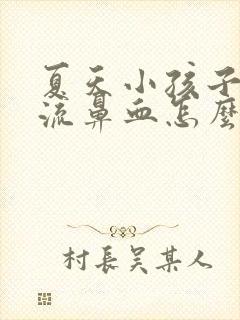 夏天小孩子
流鼻血怎麼
村長吴某人